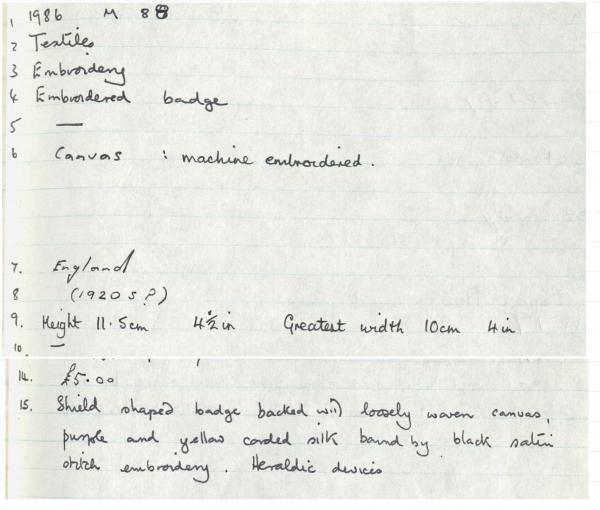 1 1986 M 88
2 Textiles
3 Embroidery
4 Embordered badge
5 —
6 Canvas : machine embroidered.
7. England
8 (1920s?)
9. Height 11.5cm 4½in Greatest width 10cm 4in
10. —
14. £5.00
15. Shield shaped badge backed with loosely woven canvas,
purple and yellow corded silk bound by black satin
stitch embroidery. Heraldic devices